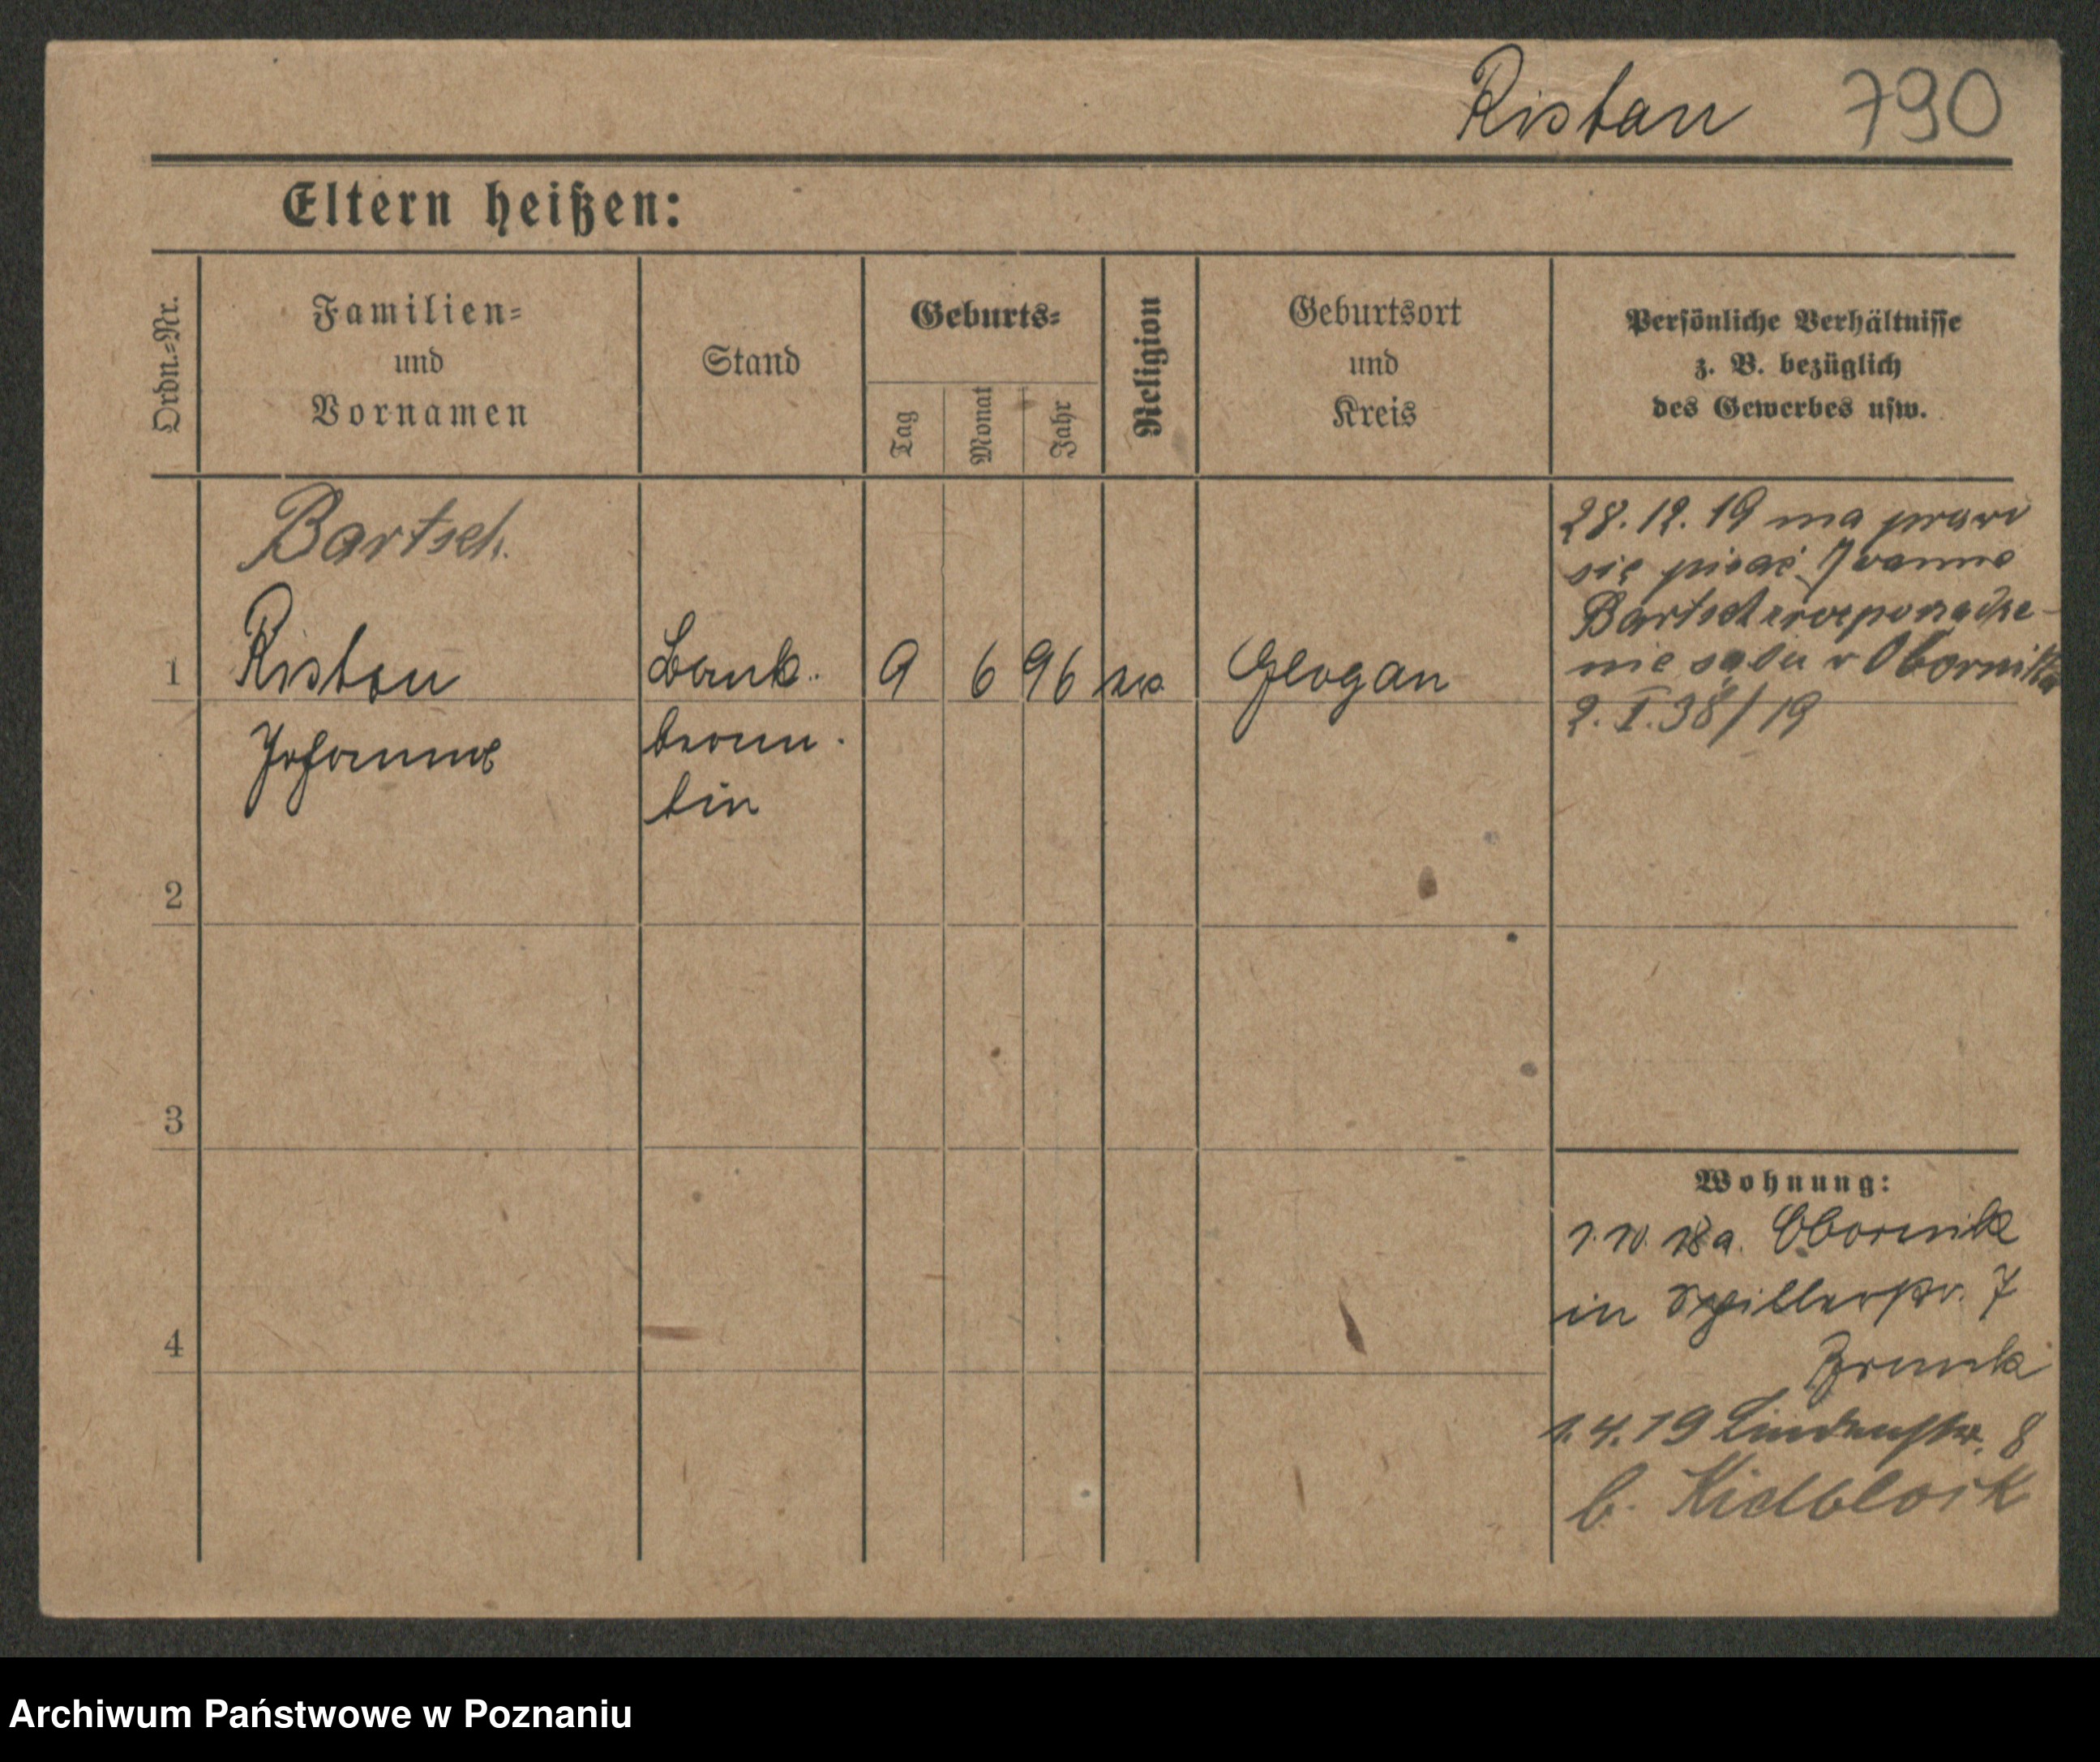 Ristau 790
Eltern heißen:
Ordn.-Nr.
Familien-
und
Vornamen
Stand
Geburts-
Tag
Monat
Jahr
Religion
Geburtsort
und
Kreis
Persönliche Verhältnisse
z. B. bezüglich
des Gewerbes usw.
Bartsch.
1 Ristau Bank. 9 6 96 Glogau
Johanna
beam.
tin
28.12.19 ma prawo
się pisać Joanna
Bartsch
nie sądu w Obornikach
2. I. 38/19
2
3
4
Wohnung:
a. Obornik
in 7
1.4.19 Lindenstr. 8
b.
Archiwum Państwowe w Poznaniu